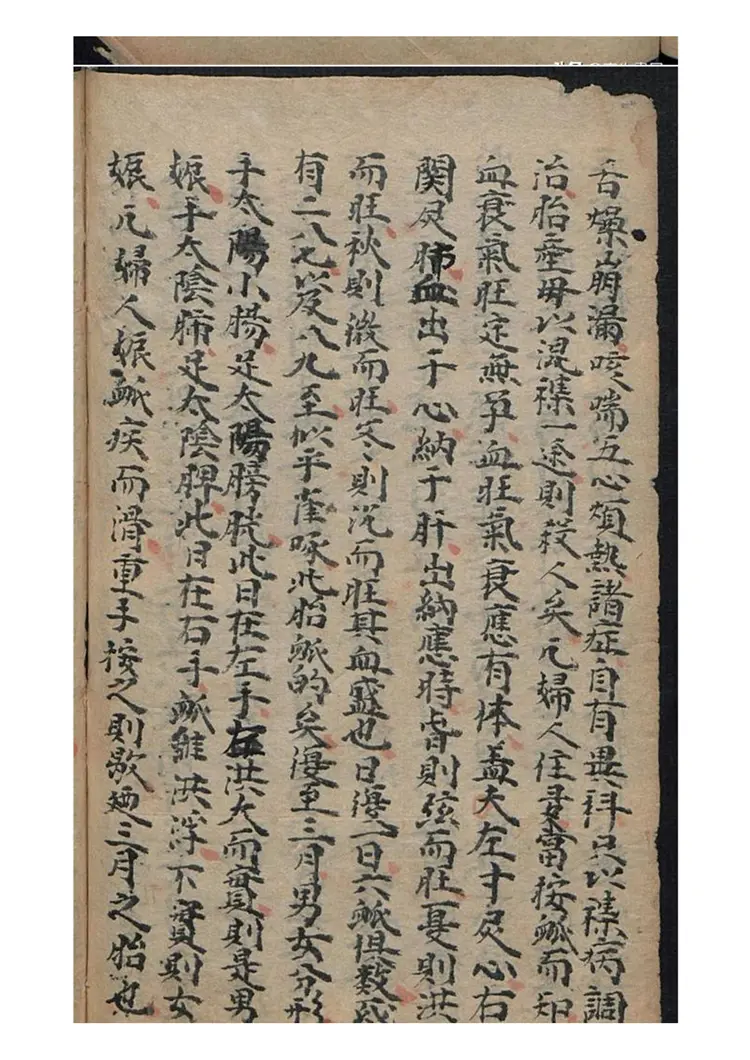 舌燥崩漏咳喘五心煩热諸症自有異科只以襍病調
治胎産毋以混襍一途則殺人矣凡婦人住妻當按䘑而知
血衰氣旺定無孕血旺氣衰應有体盖夫左寸灵心右
関灵肺血出于心納于肝出納應時春則弦而旺夏則洪
而旺秋則澁而旺冬冬則沉而旺其血盛也日復一日六䘑但数
有二八七以及八九至似乎雀啄此胎䘑的矣復至三月男女分形
手太陽小腸足太陽膀胱此日在左手左洪大而實則是男
娠手太陰肺足太陰脾此日在右手䘑雖洪浮不實則女
娠凡婦人娠䘑疾而滑重手按之則散廼三月之胎也